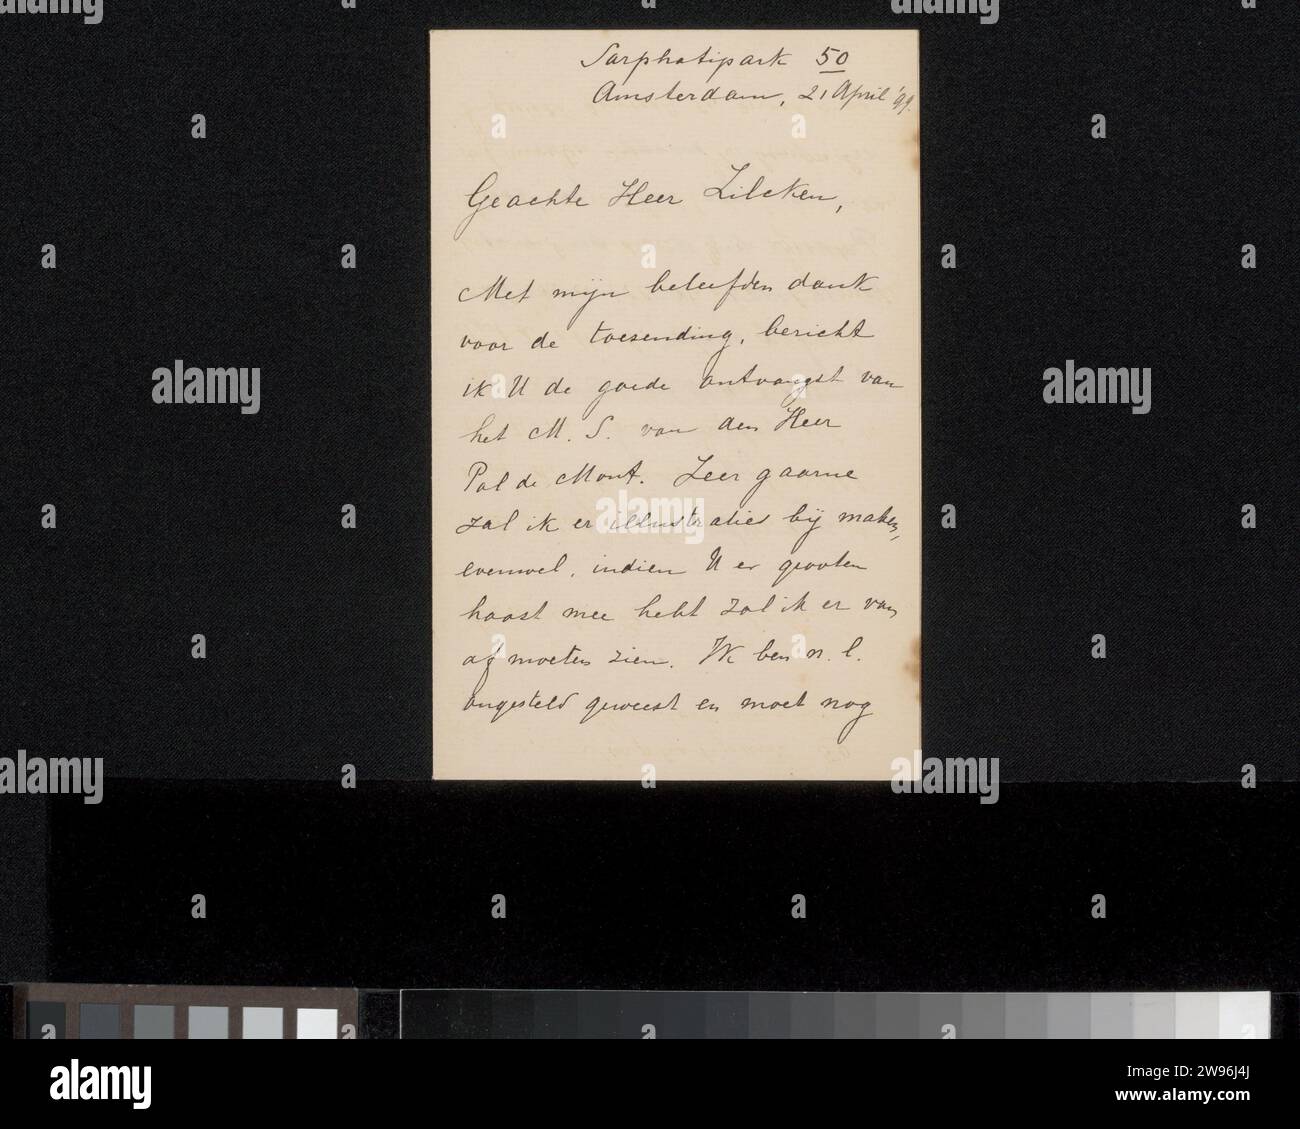 Sarphatipark 50
Amsterdam, 21 April '99.
Geachte Heer Zilcken,
Met mijn beleefden dank
voor de toezending, bericht
ik U de goede ontvangst van
het M. S. van den Heer
Pol de Mont. Zeer gaarne
zal ik er illustraties bij maken,
evenwel, indien U er grooten
haast mee hebt zal ik er van
af moeten zien. Ik ben n. l.
ongesteld geweest en moet nog
alamy
Image ID: 2W96J4J
www.alamy.com